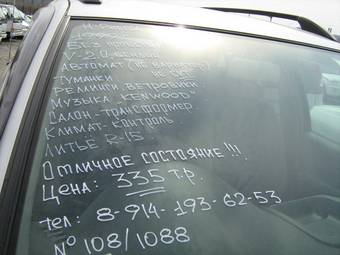 БЕЗ
V-2,0
АВТОМАТ (НЕ ВАРИАТОР)
ТУМАНКИ
РЕЛИНГИ, ВЕТРОВИКИ
МУЗЫКА "KENWOOD"
САЛОН-ТРАНСФОРМЕР
КЛИМАТ-КОНТРОЛЬ
ЛИТЬЁ R-15
ОТЛИЧНОЕ СОСТОЯНИЕ!!!
ЦЕНА: 335 т.р.
тел: 8-914-193-62-53
№ 108/1088